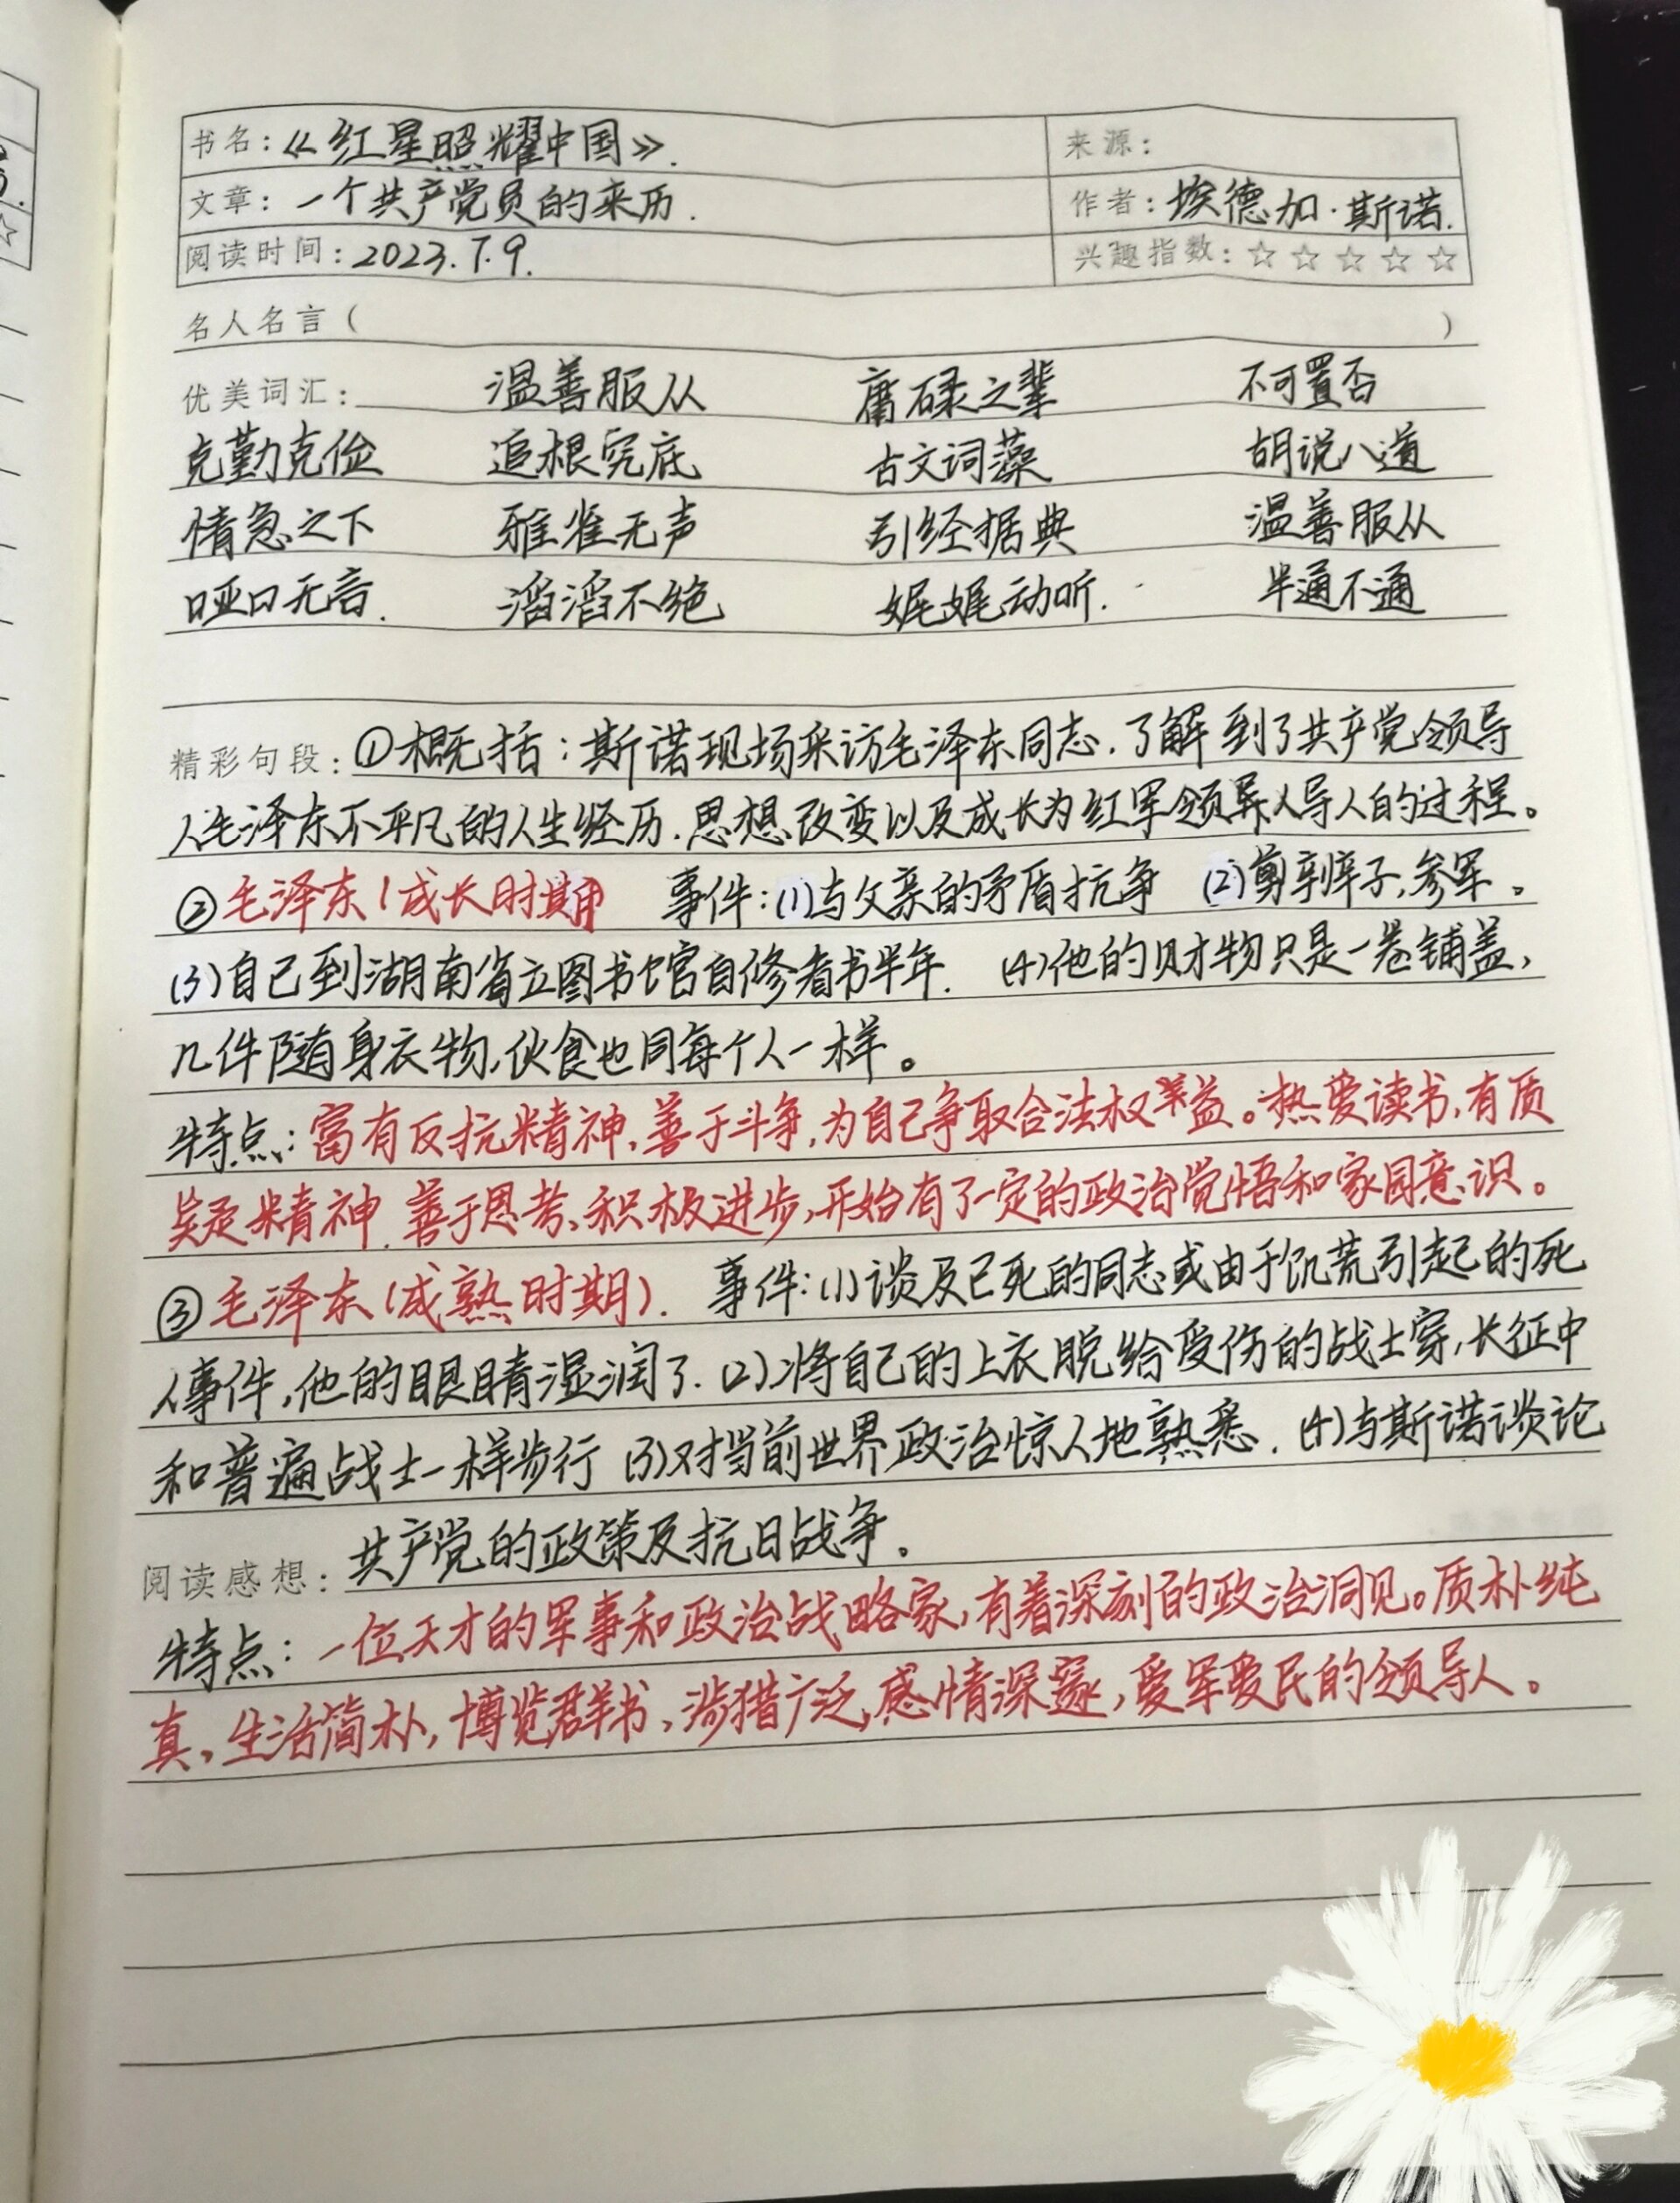 书名：《红星照耀中国》.
来源：
文章：一个共产党员的来历.
作者：埃德加·斯诺.
阅读时间：2023.7.9.
兴趣指数：☆ ☆ ☆ ☆ ☆
名人名言（ ）
优美词汇： 温善服从 庸碌之辈 不可置否
克勤克俭 追根究底 古文词藻 胡说八道
情急之下 雅雀无声 引经据典 温善服从
哑口无言. 滔滔不绝 娓娓动听. 半通不通
精彩句段：①概括：斯诺现场采访毛泽东同志.了解到了共产党领导
人毛泽东不平凡的人生经历.思想改变以及成长为红军领导人的过程。
②毛泽东（成长时期） 事件：(1)与父亲的矛盾抗争 (2)剪辫子,参军。
(3)自己到湖南省立图书馆自修看书半年. (4)他的财物只是一卷铺盖,
几件随身衣物,伙食也同每个人一样。
特点：富有反抗精神,善于斗争,为自己争取合法权益。热爱读书,有质
疑精神.善于思考、积极进步,开始有了一定的政治觉悟和家国意识。
③毛泽东（成熟时期）. 事件：(1)谈及已死的同志或由于饥荒引起的死
人事件,他的眼睛湿润了.(2)将自己的上衣脱给受伤的战士穿,长征中
和普遍战士一样步行 (3)对当前世界政治惊人地熟悉.(4)与斯诺谈论
阅读感想：共产党的政策及抗日战争。
特点：一位天才的军事和政治战略家,有着深刻的政治洞见。质朴纯
真,生活简朴,博览群书,涉猎广泛,感情深邃,爱军爱民的领导人。